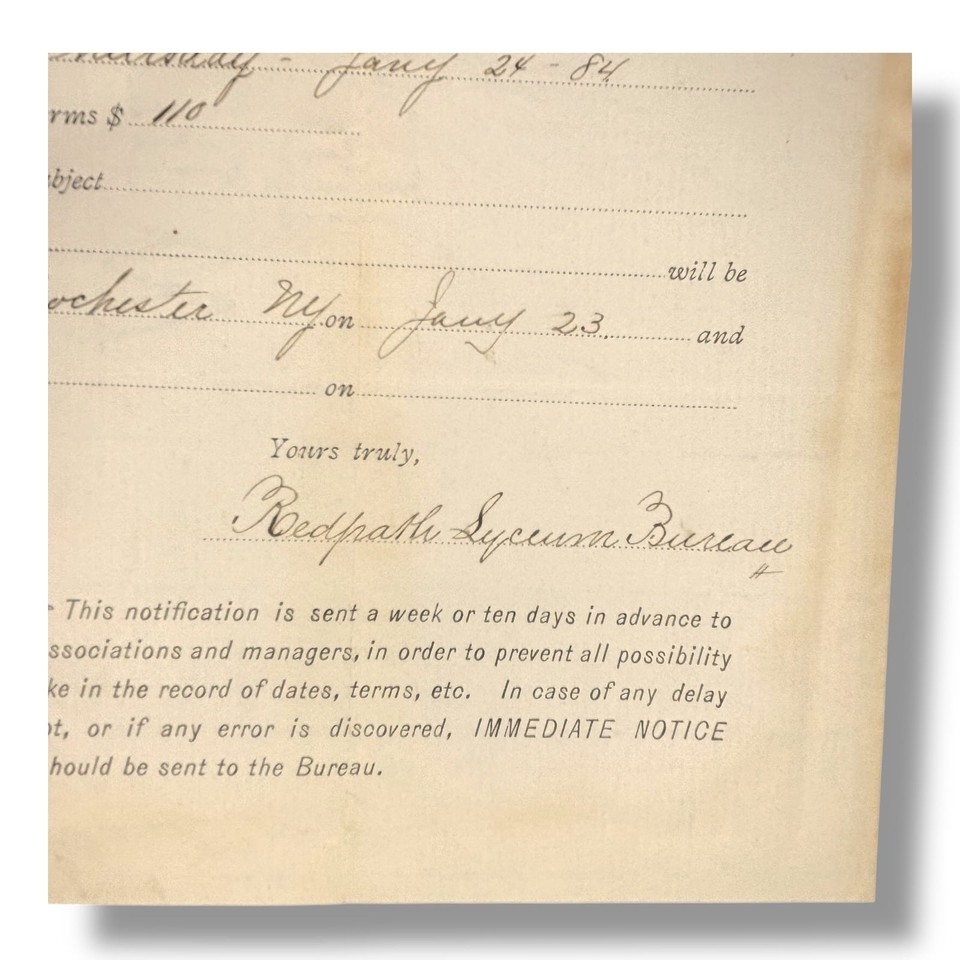 Thursday - Jany 24 - 84
rms $ 110
bject
will be
ochester NY on Jany 23. and
on
Yours truly,
Redpath Lyceum Bureau
This notification is sent a week or ten days in advance to
ssociations and managers, in order to prevent all possibility
ke in the record of dates, terms, etc. In case of any delay
ot, or if any error is discovered, IMMEDIATE NOTICE
hould be sent to the Bureau.